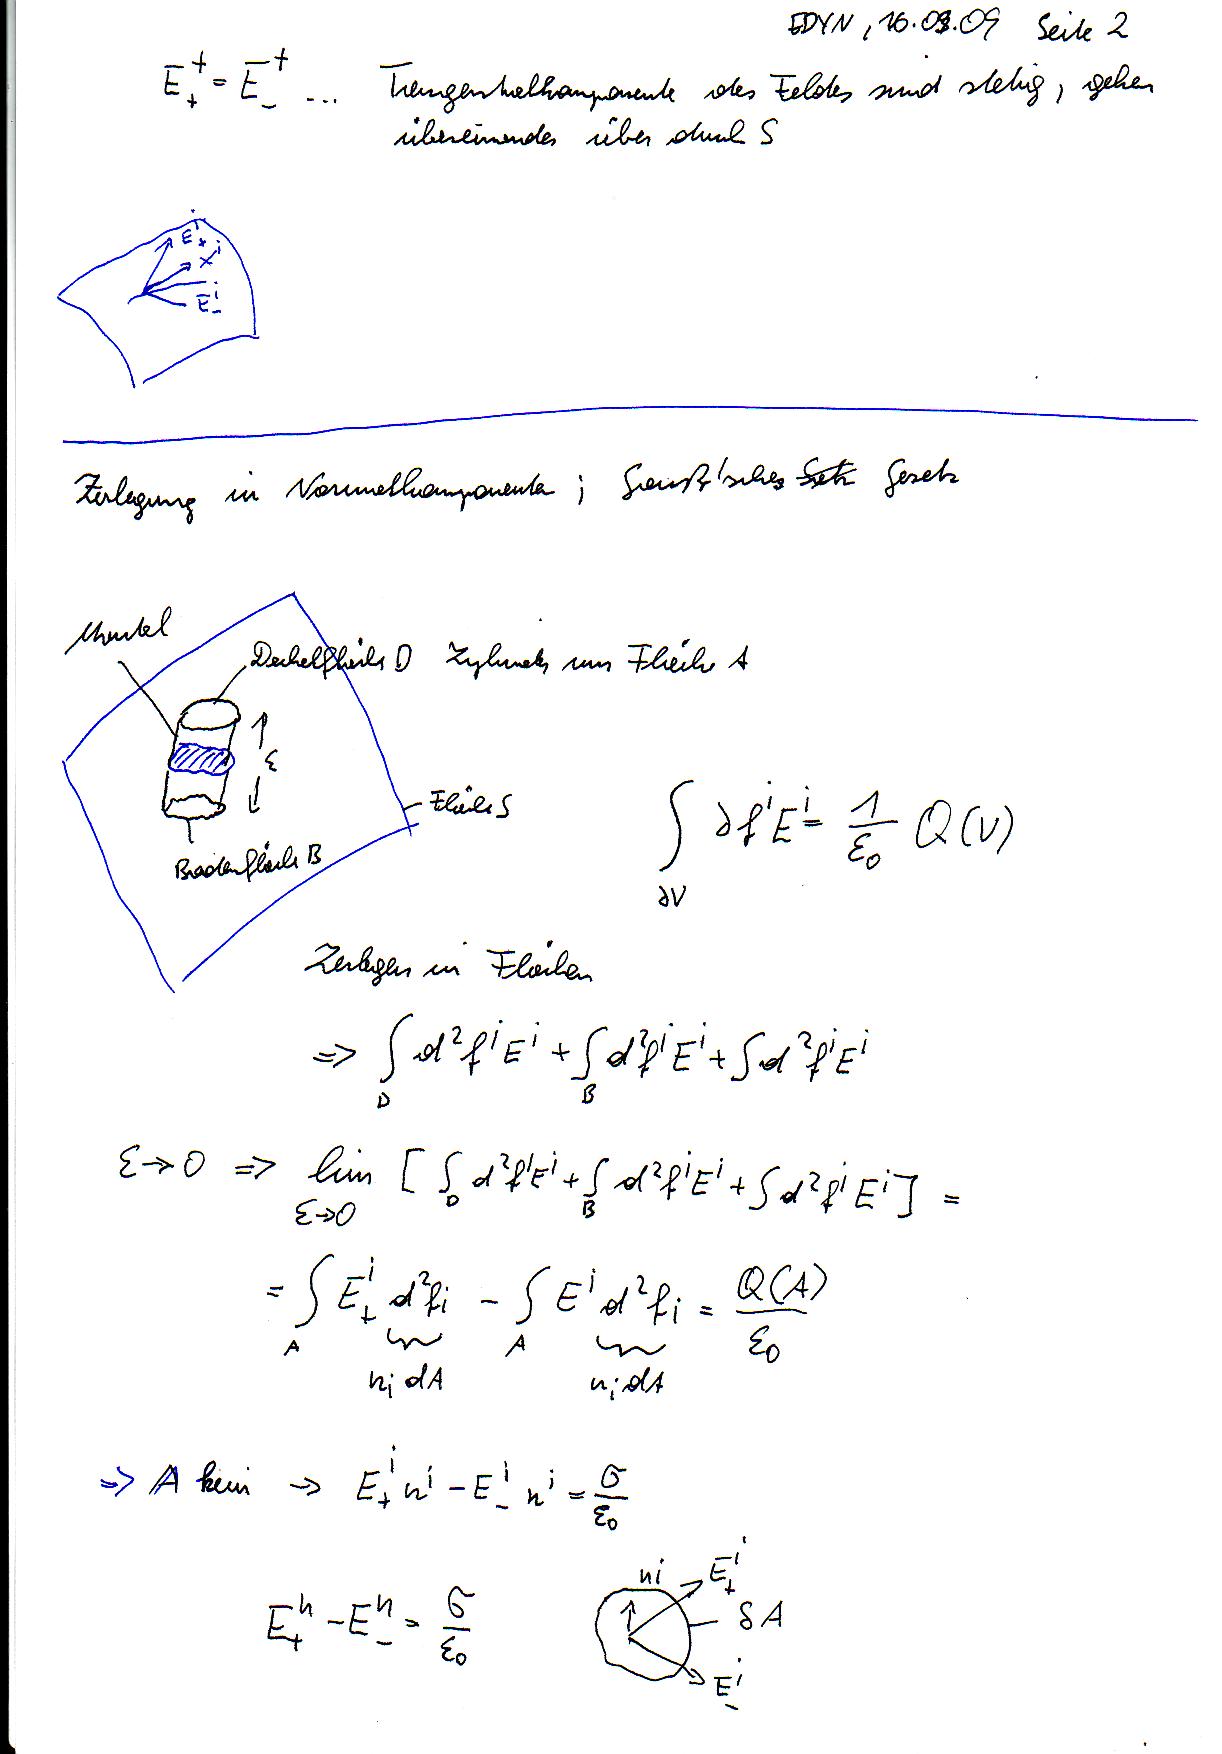 EDYN, 16.03.09 Seite 2
E₊⁺ = E₋⁺ ... Tangentialkomponente des Feldes sind stetig, gehen
übereinander über durch S
E₊ⁱ
xⁱ
E₋ⁱ
Zerlegung in Normalkomponenten ; Gauß'sches Gesetz
Mantel
Deckelfläche D Zylinder um Fläche A
ε
Fläche S
Bodenfläche B
∫_∂V ∂fⁱEⁱ = 1/ε₀ Q(V)
Zerlegen in Flächen
=> ∫_D d²fⁱEⁱ + ∫_B d²fⁱEⁱ + ∫ d²fⁱEⁱ
ε→0 => lim_ε→0 [ ∫_D d²fⁱEⁱ + ∫_B d²fⁱEⁱ + ∫ d²fⁱEⁱ ] =
= ∫_A E₊ⁱ d²fᵢ − ∫_A Eⁱ d²fᵢ = Q(A)/ε₀
nᵢ dA nᵢ dA
=> A klein → E₊ⁱ nⁱ − E₋ⁱ nⁱ = σ/ε₀
nⁱ E₊ⁱ
E₊ⁿ − E₋ⁿ = σ/ε₀
δA
E₋ⁱ